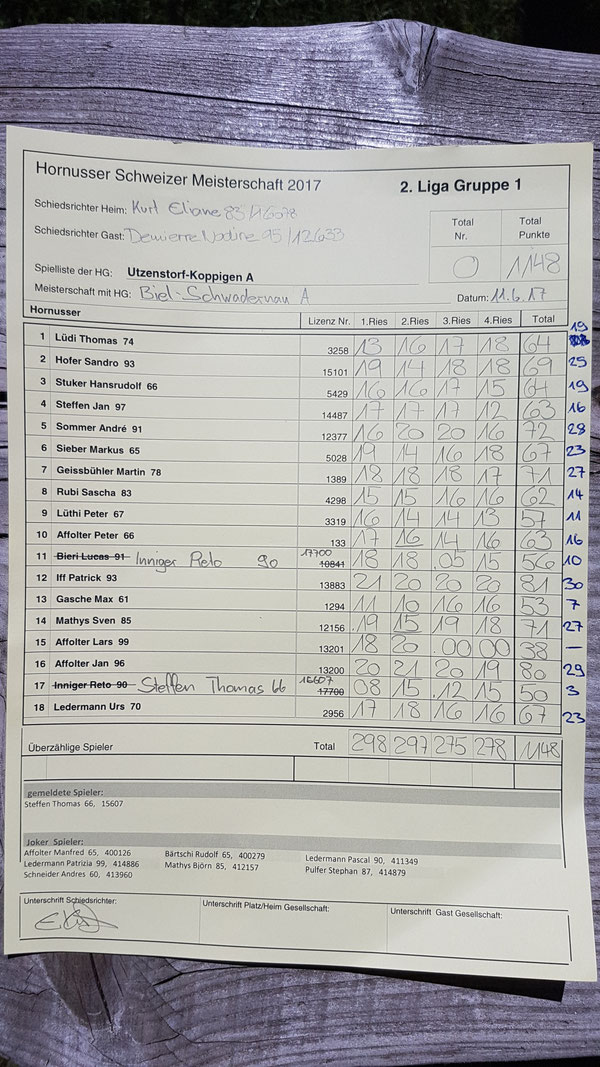 Hornusser Schweizer Meisterschaft 2017 2. Liga Gruppe 1
Schiedsrichter Heim: Kurt Eliane 83/
Schiedsrichter Gast: Demierre Nadine 95/12633
Total Nr. Total Punkte
0 1148
Spielliste der HG: Utzenstorf-Koppigen A
Meisterschaft mit HG: Biel-Schwadernau A Datum: 11.6.17
Hornusser Lizenz Nr. 1.Ries 2.Ries 3.Ries 4.Ries Total
1 Lüdi Thomas 74 3258 13 16 17 18 64 19
2 Hofer Sandro 93 15101 19 14 18 18 69 25
3 Stuker Hansrudolf 66 5429 16 16 17 15 64 19
4 Steffen Jan 97 14487 17 17 17 12 63 16
5 Sommer André 91 12377 16 20 20 16 72 28
6 Sieber Markus 65 5028 19 14 16 18 67 23
7 Geissbühler Martin 78 1389 18 18 18 17 71 27
8 Rubi Sascha 83 4298 15 15 16 16 62 14
9 Lüthi Peter 67 3319 16 14 14 13 57 11
10 Affolter Peter 66 133 17 16 14 16 63 16
11 Bieri Lucas 91 Inniger Reto 90 17700 10841 18 18 .05 15 56 10
12 Iff Patrick 93 13883 21 20 20 20 81 30
13 Gasche Max 61 1294 11 10 16 16 53 7
14 Mathys Sven 85 12156 .19 15 19 18 71 27
15 Affolter Lars 99 13201 18 20 .00 00 38 –
16 Affolter Jan 96 13200 20 21 20 19 80 29
17 Inniger Reto 90 Steffen Thomas 66 15607 17700 08 15 .12 15 50 3
18 Ledermann Urs 70 2956 17 18 16 16 67 23
Überzählige Spieler Total 298 297 275 278 1148
gemeldete Spieler:
Steffen Thomas 66, 15607
Joker Spieler:
Affolter Manfred 65, 400126 Bärtschi Rudolf 65, 400279 Ledermann Pascal 90, 411349
Ledermann Patrizia 99, 414886 Mathys Björn 85, 412157 Pulfer Stephan 87, 414879
Schneider Andres 60, 413960
Unterschrift Schiedsrichter: Unterschrift Platz/Heim Gesellschaft: Unterschrift Gast Gesellschaft: